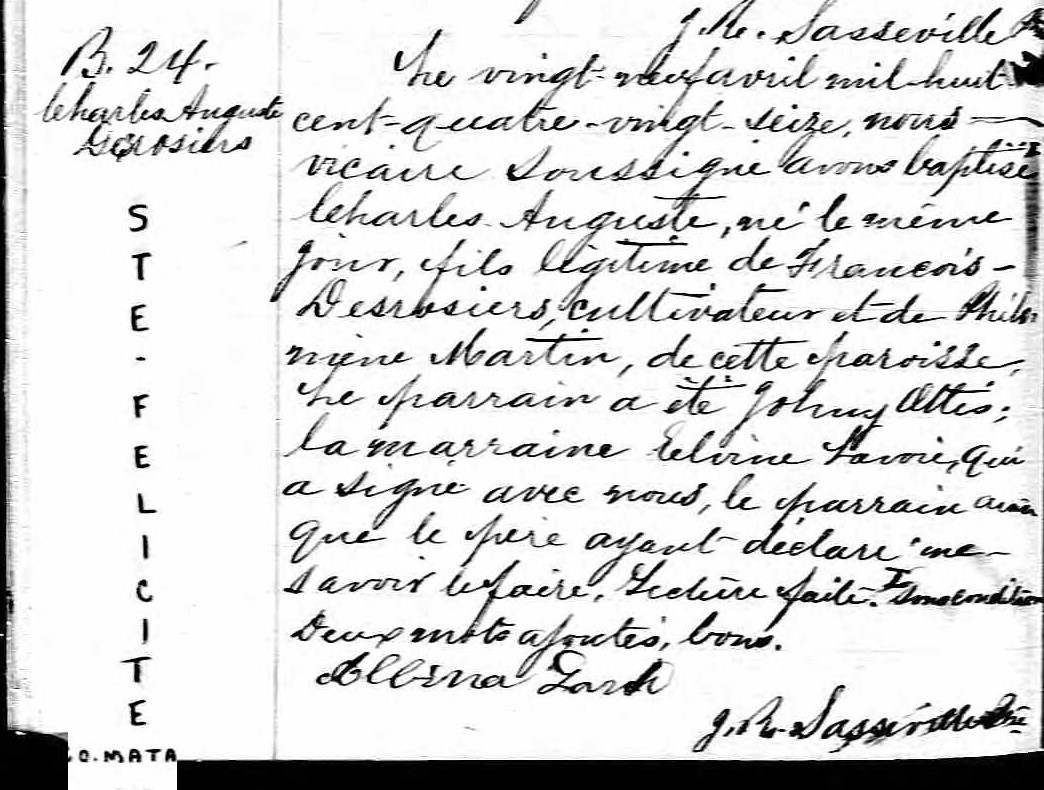 J. R. Sasseville Ptre
B. 24.
Charles Auguste
Desrosiers
STE-FELICITE
CO. MATA
Le vingt-neuf avril mil-huit-
cent-quatre-vingt-seize, nous
vicaire soussigné avons baptisé
Charles Auguste, né le même
jour, fils légitime de François
Desrosiers, cultivateur et de Philo
mène Martin, de cette paroisse,
Le parrain a été Johny Ottis;
la marraine Savoie, qui
a signé avec nous, le parrain ainsi
que le père ayant déclaré ne
savoir le faire. Lecture faite. ‡ sous condition
Deux mots ajoutés, bons.
Albina
J. R. Sasseville Ptre